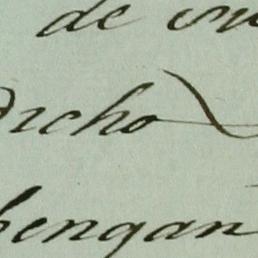 de su
Dicho
bengan